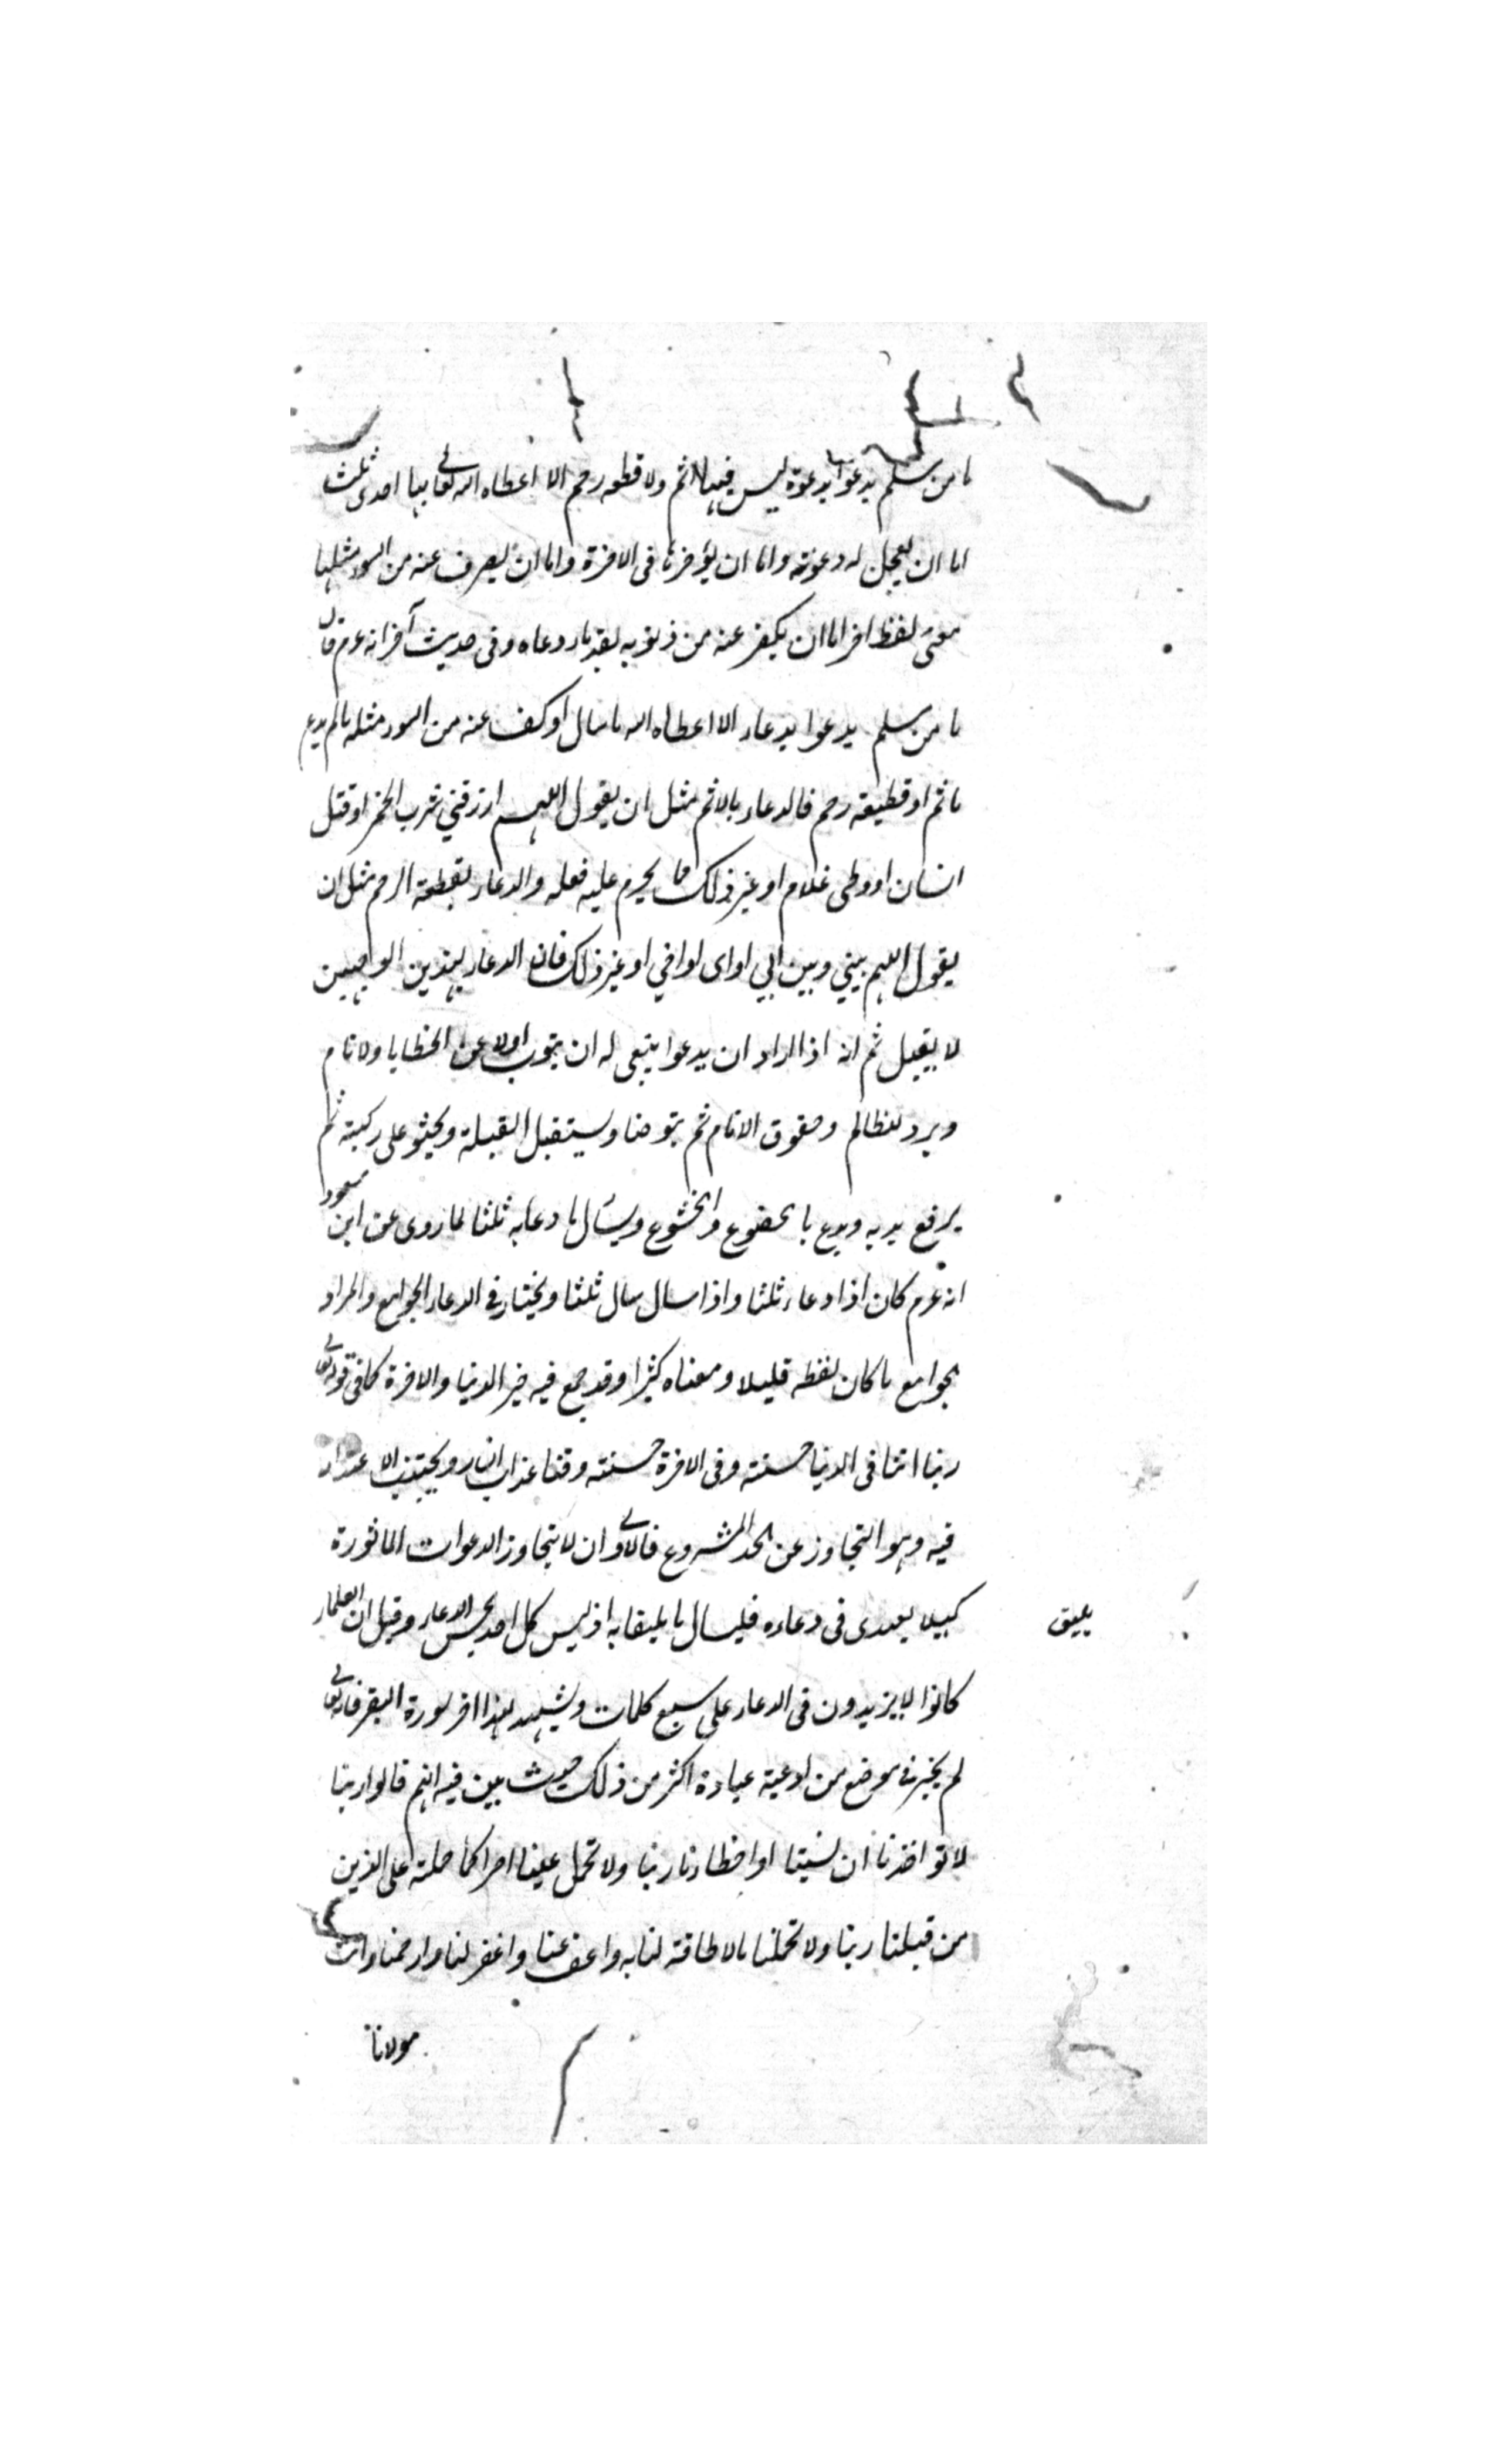 ما من مسلم يدعوا بدعوة ليس فيها اثم ولا قطعه رحم الا اعطاه الله تعالى بها احدى ثلث
اما ان يعجل له دعوته واما ان يؤخرها فى الاخرة واما ان يصرف عنه من السوء مثلها
معنى لفظ اخر اما ان يكفر عنه من ذنوبه بقدر ما دعاه وفى حديث آخر انه عم قال
ما من مسلم يدعوا بدعاء الا اعطاه الله ما سال او كف عنه من السوء مثله ما لم يدع
باثم او قطيعة رحم فالدعاء بالاثم مثل ان يقول اللهم ارزقني شرب الخمر او قتل
انسان او وطى غلام او غير ذلك مما يحرم عليه فعله والدعاء بقطعة الرحم مثل ان
يقول اللهم بيني وبين ابي او امى او اخي او غير ذلك فان الدعاء بهذين الوجهين
لا يقبل ثم انه اذا اراد ان يدعوا ينبغى له ان يتوب اولا عن الخطايا والاثام
ويرد المظالم وحقوق الانام ثم يتوضا ويستقبل القبلة ويجثو على ركبته ثم
يرفع يديه ويدع بالخضوع والخشوع ويسأل ما دعا به ثلثا لما روى عن ابن مسعود
انه عم كان اذا دعاء ثلثا واذا سال سال ثلثا ويختار فى الدعاء الجوامع والمراد
بجوامع ما كان لفظه قليلا ومعناه كثيرا وقد جمع فيه خير الدنيا والاخرة كما فى قوله تعالى
ربنا اتنا فى الدنيا حسنة وفى الاخرة حسنة وقنا عذاب النار ويجتنب الاعتداء
فيه وهو التجاوز عن الحد المشروع فالاولى ان لا يتجاوز الدعوات الماثورة
كيلا يعدى فى دعاءه فيسال ما يليقا به اذ ليس كل احد يحسن الدعاء وقيل ان العلماء
يليق
كانوا لا يزيدون فى الدعاء على سبع كلمات ويشهد لهذا اخر سورة البقر فانه تعالى
لم يخبر فى موضع من ادعية عباده اكثر من ذلك حيث بين فيه انهم قالوا ربنا
لا تواخذنا ان نسينا او اخطاءنا ربنا ولا تحمل علينا اصرا كما حملته على الذين
من قبلنا ربنا ولا تحملنا ما لا طاقة لنا به واعف عنا واغفر لنا وارحمنا وانت
مولانا